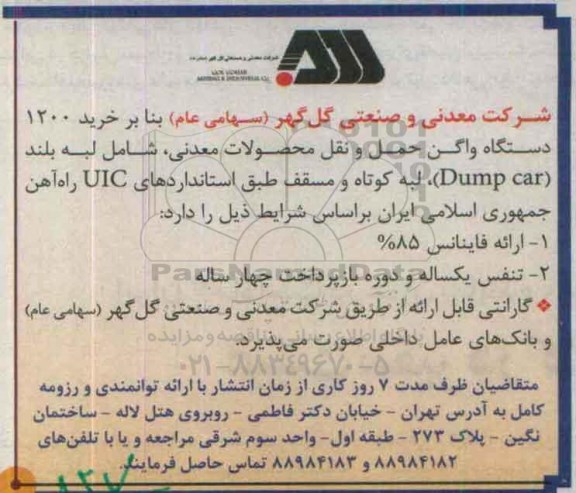 شرکت معدنی و صنعتی گل گهر (سهامی عام)
GOL GOHAR
MINING & INDUSTRIAL CO.
شرکت معدنی و صنعتی گل‌گهر (سهامی عام) بنا بر خرید ۱۲۰۰
دستگاه واگن حمل و نقل محصولات معدنی، شامل لبه بلند
(Dump car)، لبه کوتاه و مسقف طبق استانداردهای UIC راه‌آهن
جمهوری اسلامی ایران براساس شرایط ذیل را دارد:
۱- ارائه فاینانس ۸۵%
۲- تنفس یکساله و دوره بازپرداخت چهار ساله
ParsNamadData
گارانتی قابل ارائه از طریق شرکت معدنی و صنعتی گل‌گهر (سهامی عام)
و بانک‌های عامل داخلی صورت می‌پذیرد.
پایگاه اطلاع رسانی مناقصه و مزایده
۰۲۱-۸۸۳۴۹۶۷۰-۵
متقاضیان ظرف مدت ۷ روز کاری از زمان انتشار با ارائه توانمندی و رزومه
کامل به آدرس تهران - خیابان دکتر فاطمی - روبروی هتل لاله - ساختمان
نگین - پلاک ۲۷۳ - طبقه اول- واحد سوم شرقی مراجعه و یا با تلفن‌های
۸۸۹۸۴۱۸۲ و ۸۸۹۸۴۱۸۳ تماس حاصل فرمایند.